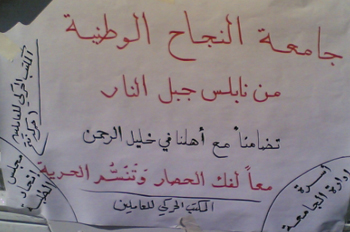 جامعة النجاح الوطنية
من نابلس جبل النار
تضامناً مع أهلنا في خليل الرحمن
معاً لفك الحصار وتنسُّم الحرية
المكتب الحركي للعاملين
المكتب الحركي للعاملين
مجلس اتحاد
أسرة
إدارة الجامعة